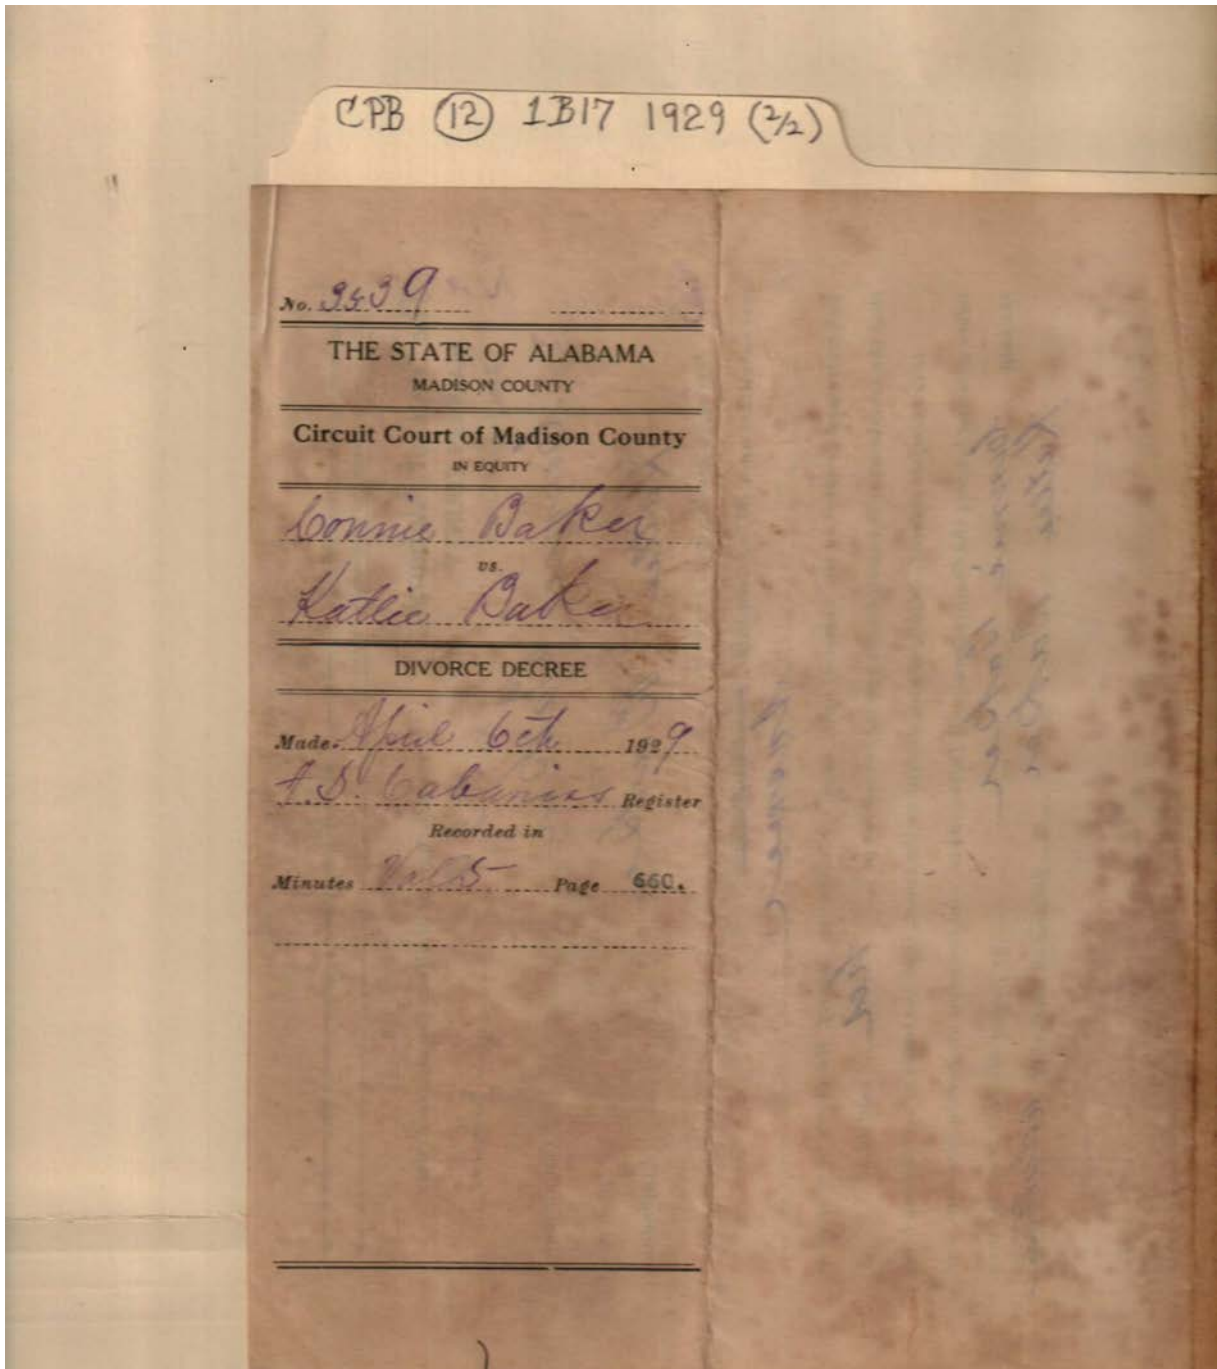 CPB (12) 1B17 1929 (2/2)
No. 3539
THE STATE OF ALABAMA
MADISON COUNTY
Circuit Court of Madison County
IN EQUITY
Connie Baker
vs.
Katlie Baker
DIVORCE DECREE
Made April 6th 1929
Cabaniss Register
Recorded in
Minutes Vol 5 Page 660.